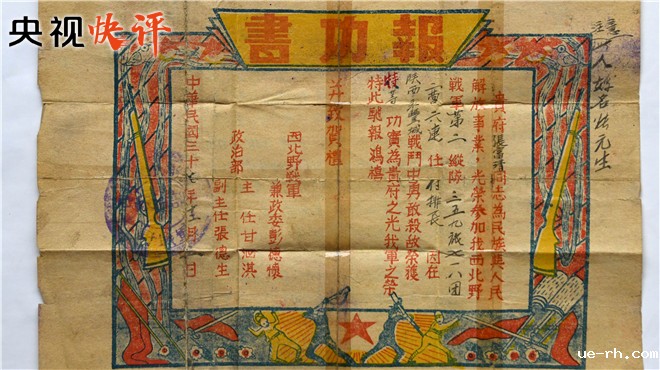 央视快评
書功報
貴府張富清同志為民族與人民
解放事業,光榮參加我西北野
戰軍第二縱隊三五九旅七一八團
二營六連任付排長因在
陕西永豐城戰鬥中勇敢殺敵榮獲
特等功實為貴府之光我軍之榮
特此馳報鴻禧
并致賀禮
西北野戰軍
兼政委彭德懷
政治部
主任甘泗淇
副主任張德生
中華民國三十七年
月
日
ue-rh.com